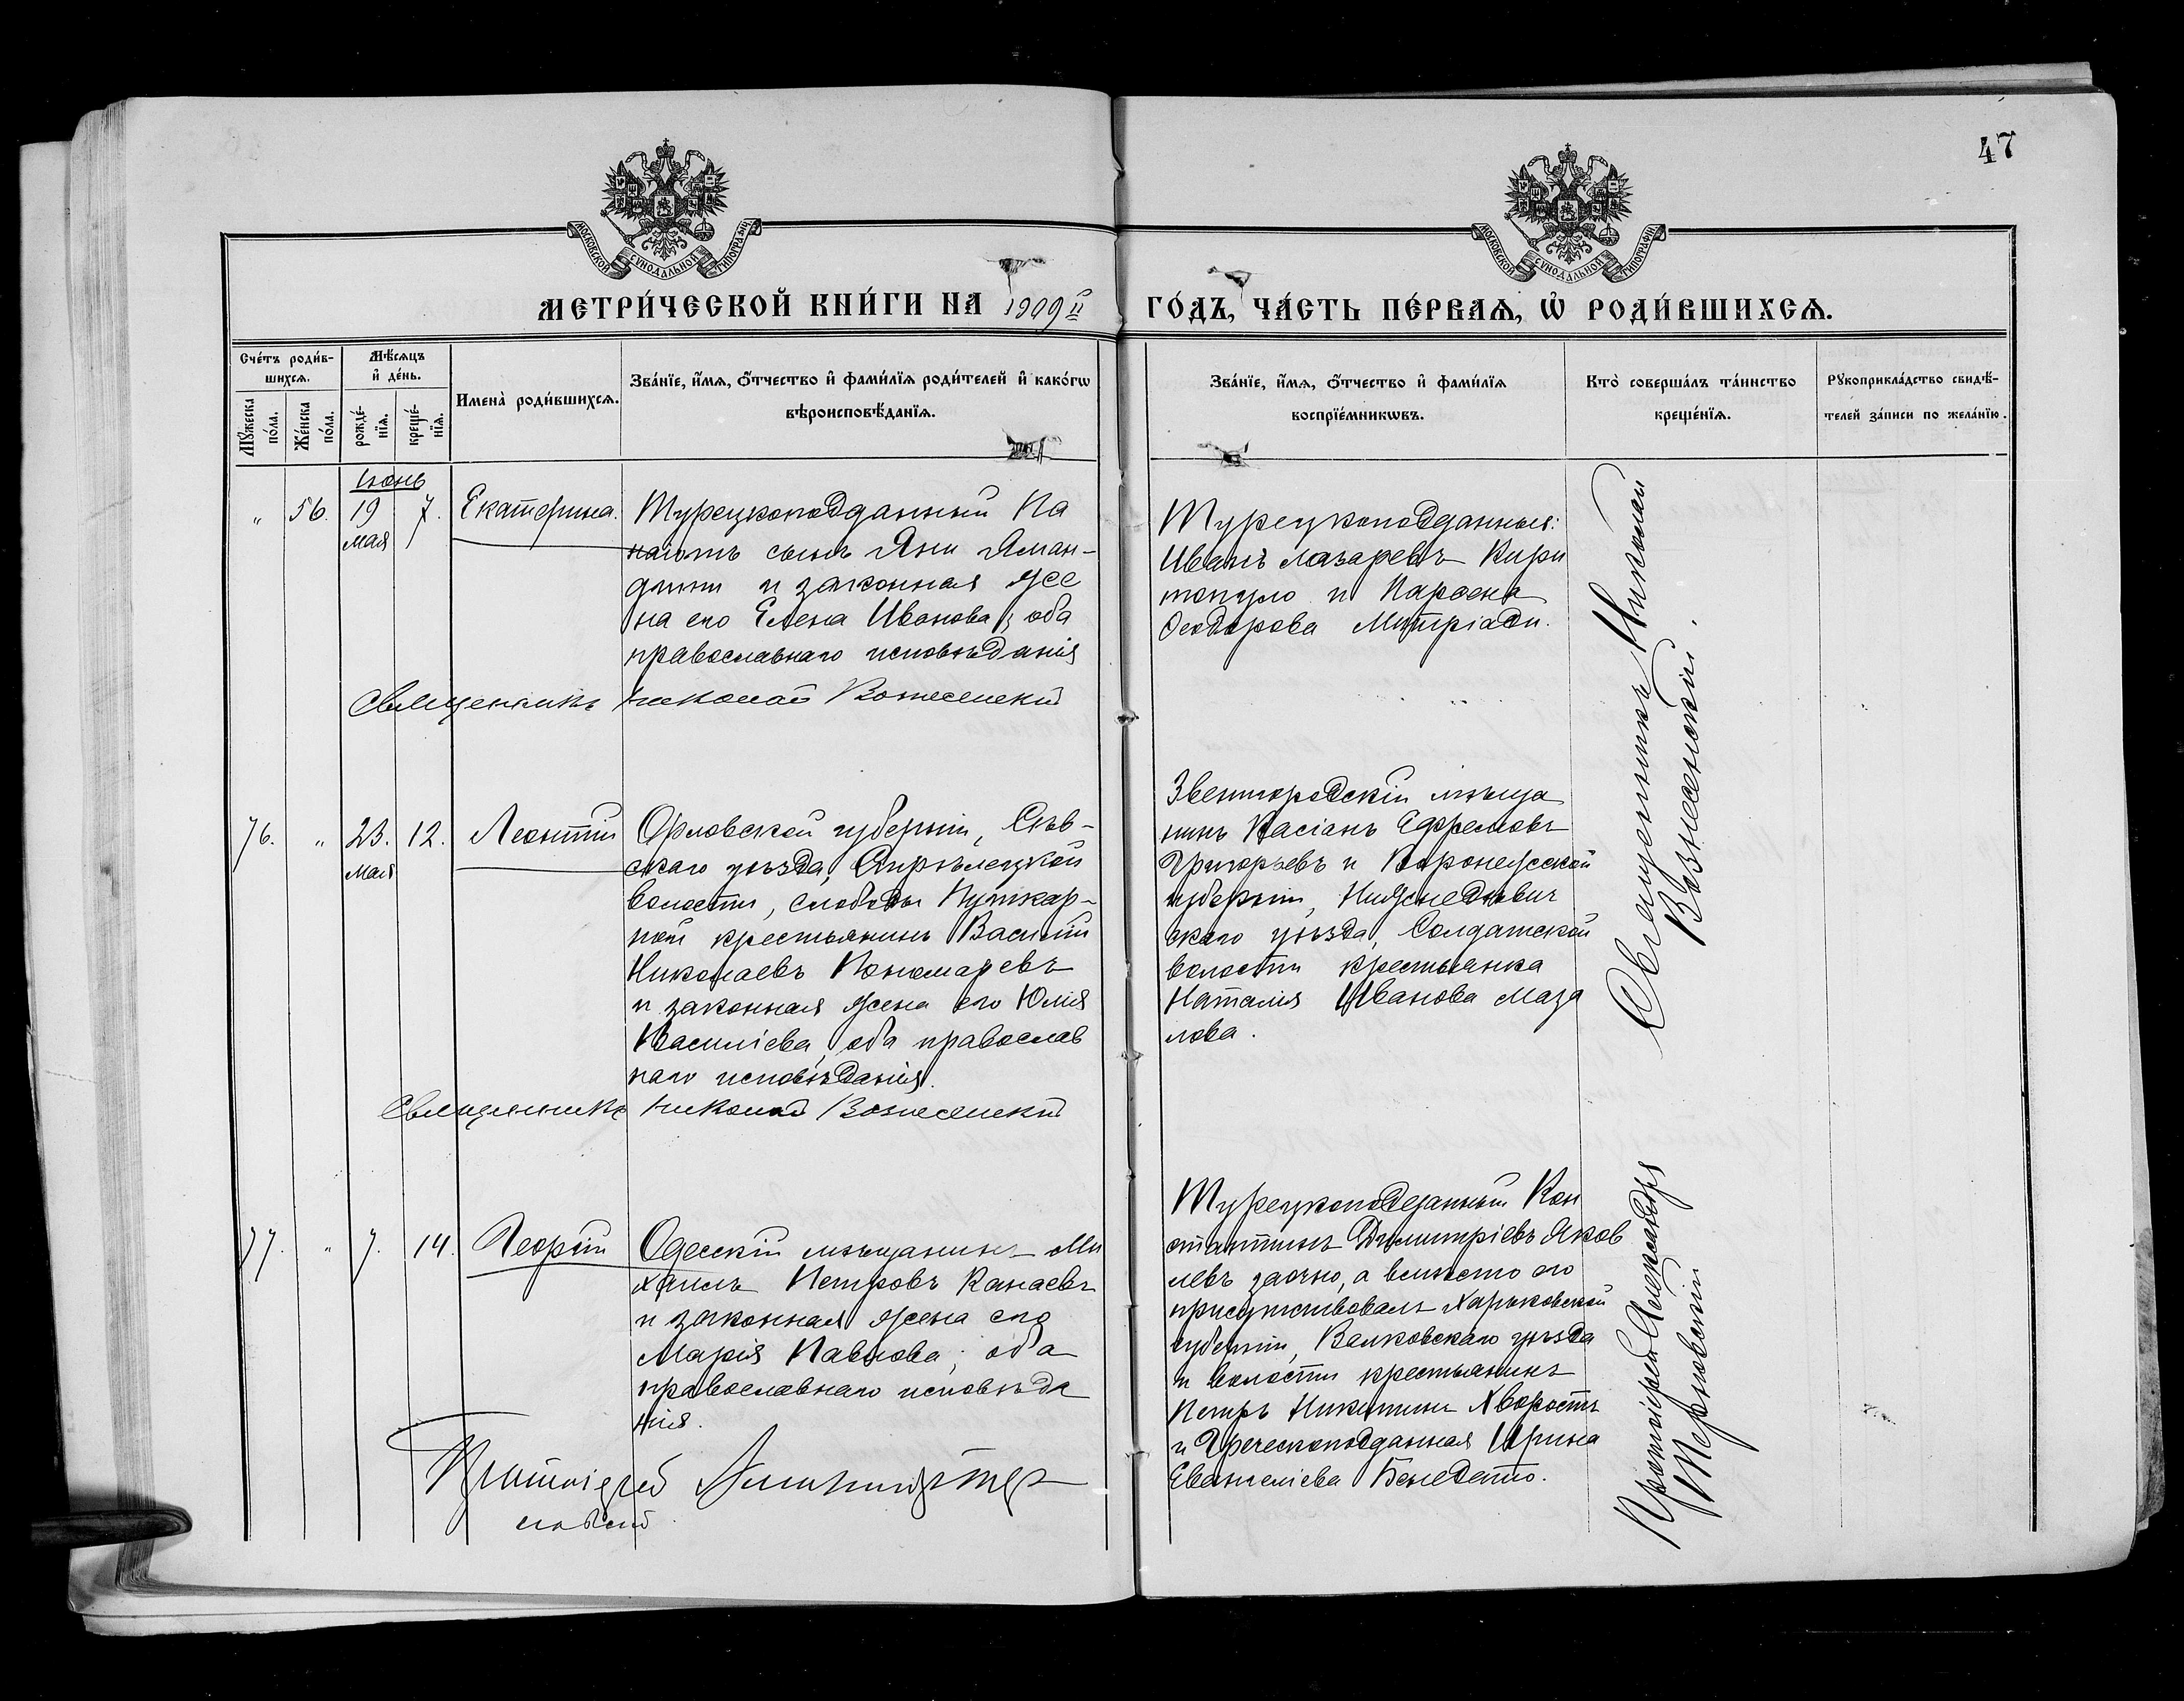 47
МОСКОВСКОЙ СУНОДАЛЬНОЙ ТИПОГРАФІИ
МОСКОВСКОЙ СУНОДАЛЬНОЙ ТИПОГРАФІИ
МЕТРИ́ЧЕСКОЙ КНИ́ГИ НА 1909 II
ГО́ДЪ, ЧА́СТЬ ПЕ́РВАѦ, Ѡ҆ РОДИ́ВШИХСѦ.
Сче́тъ роди́в-
шихсѧ.
Мѣ́сѧцъ
и҆ де́нь.
Мꙋ́жеска
по́ла.
Же́нска
по́ла.
рожде́-
нїѧ.
креще́-
нїѧ.
Имена̀ роди́вшихсѧ.
Зва́нїе, и҆́мѧ, ѻ҆́тчество и҆ фами́лїѧ роди́телей и҆ како́гѡ
вѣроисповѣ́данїѧ.
Зва́нїе, и҆́мѧ, ѻ҆́тчество и҆ фами́лїѧ
воспрїе́мникѡвъ.
Кто̀ соверша́лъ та́инство
креще́нїѧ.
Рꙋкоприкла́дство свидѣ́-
телей за́писи по жела́нїю.
Іюнь
„ 56. 19 7. Екатерина. Турецкоподданный Па
мая
наіотъ сынъ Яни Аман-
дити и законная же
на его Елена Иванова, оба
православнаго исповѣданія
Священникъ Николай Вознесенскій
Турецкоподданные:
Иванъ Лазаревъ Кири
топуло и Парѳена
Ѳеодорова Митріади.
Священникъ Николай
Вознесенскій.
76. „ 23. 12. Леонтій Орловской губерніи, Сѣв-
мая
скаго уѣзда, Апрѣлецкой
волости, слободы Пушкар-
ной крестьянинъ Василій
Николаевъ Пономаревъ
и законная жена его Юлія
Василіева, оба православ
наго исповѣданія.
Священникъ Николай Вознесенскій
Звенигородскій мѣща
нинъ Касіанъ Ефремовъ
Григорьевъ и Воронежской
губерніи, Нижнедѣвиц
скаго уѣзда, Солдатской
волости крестьянка
Наталія Иванова Маза
лова.
77. „ 7. 14. Георгій Одесскій мѣщанинъ Ми
хаилъ Петровъ Канаевъ
и законная жена его
Марія Павлова; оба
православнаго исповѣда
нія.
Протоіерей
Турецкоподданный Кон
стантинъ Димитріевъ Яков
левъ заочно, а вмѣсто его
присутствовалъ Харьковской
губерніи, Валковскаго уѣзда
и волости крестьянинъ
Петръ Никитинъ Хворостъ
и Греческоподданная Ирина
Евангеліева Бенедато.
Протоіерей Александръ
Терновскій